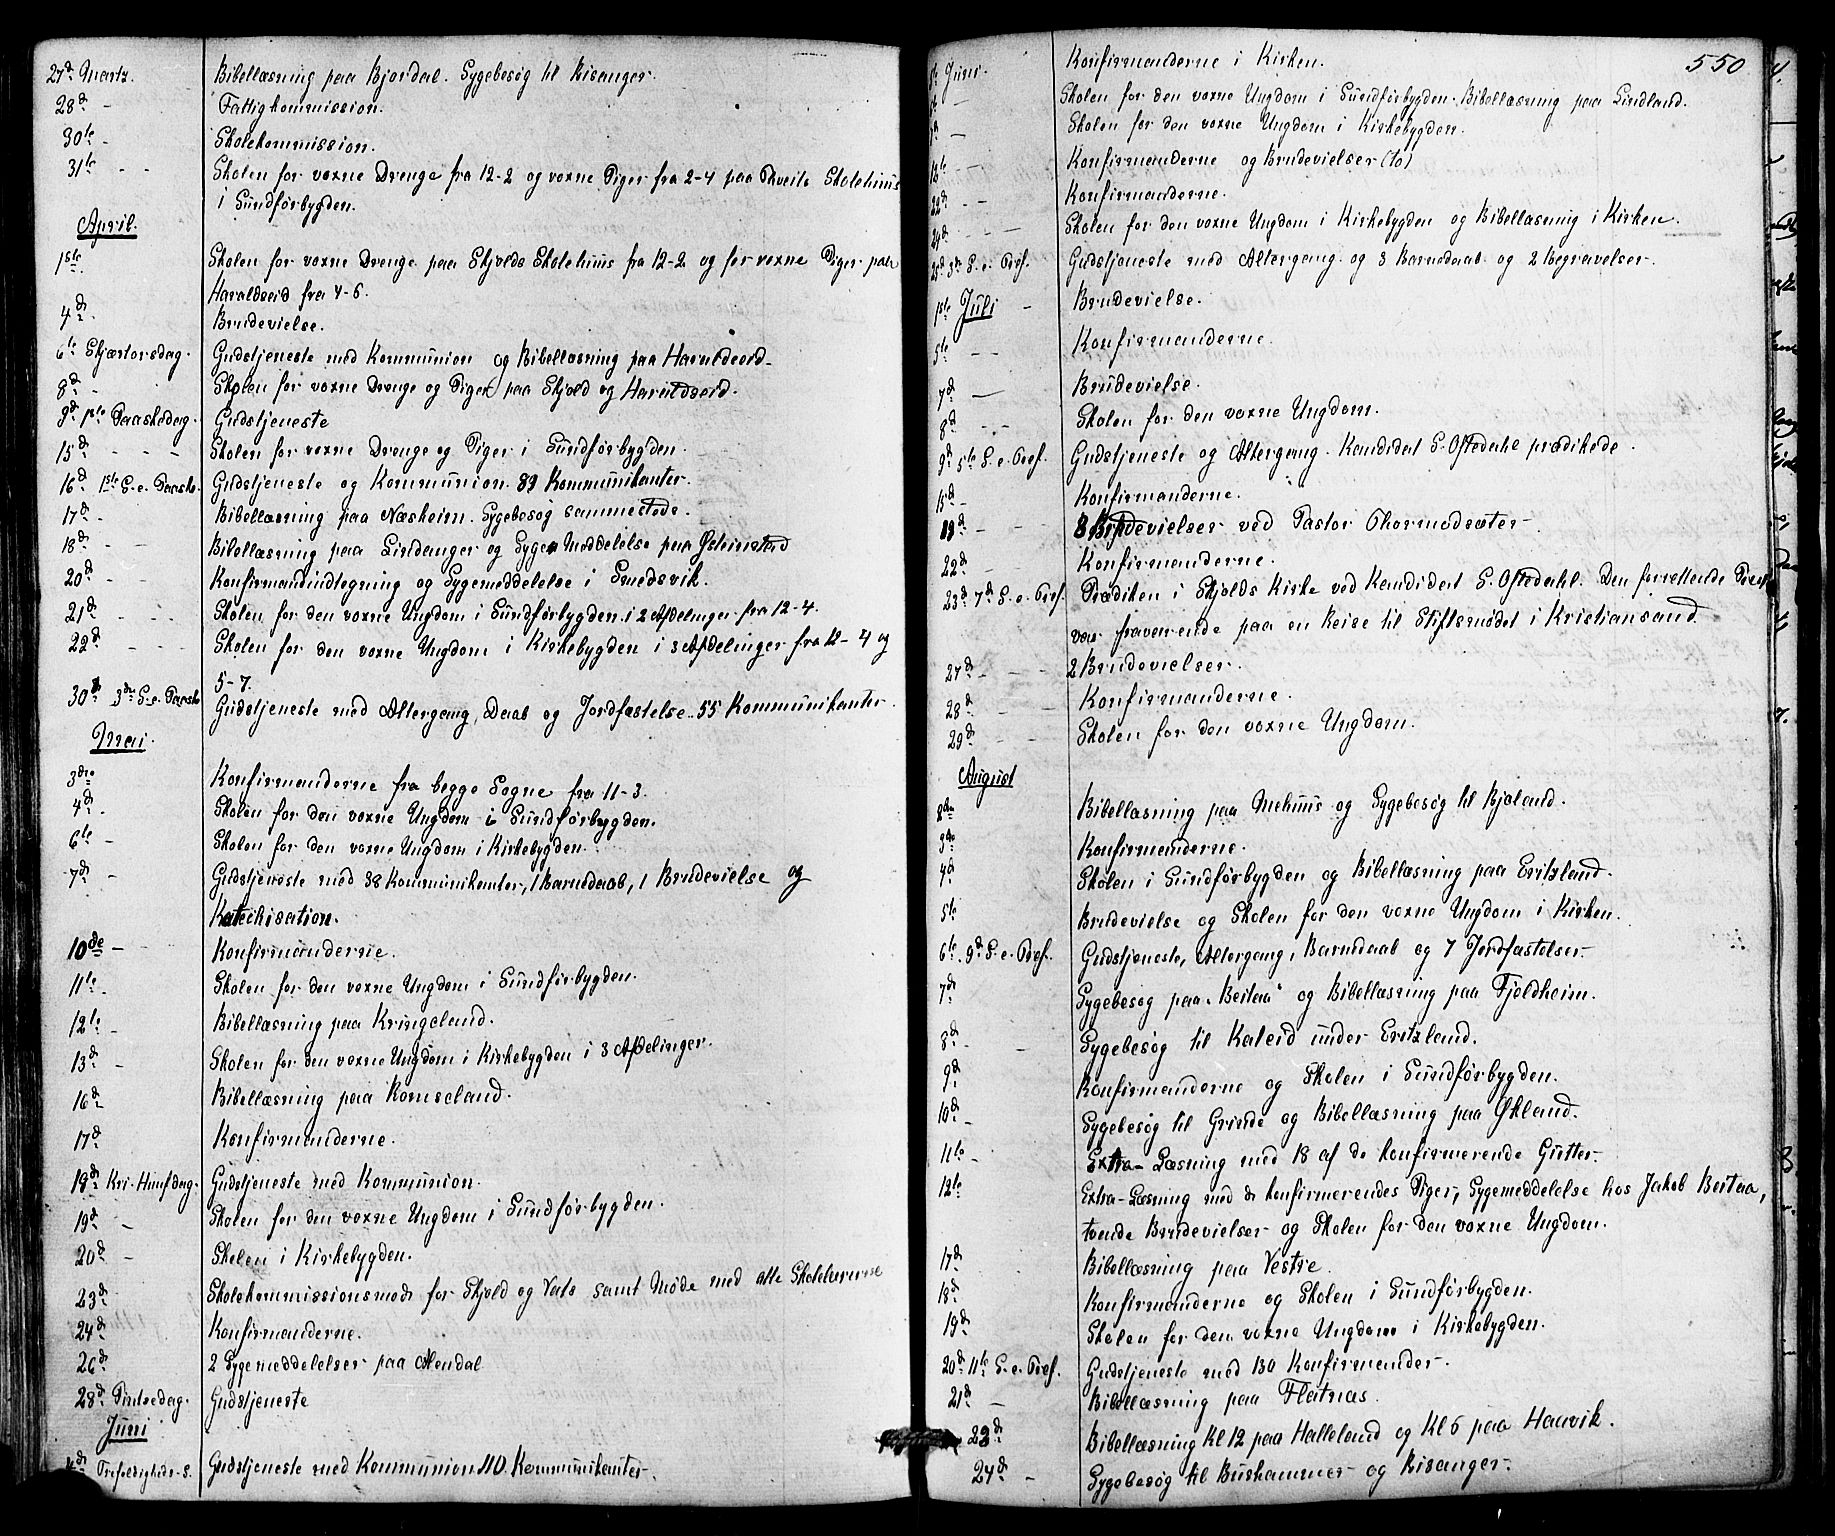 27de Martz. Bibellæsning paa Bjordal. Sygebesøg til Risanger.
28de - Fattigkommission.
30te - Skolekommission.
31te - - Skolen for voxne Drenge fra 12-2 og voxne Piger fra 2-4 paa Skolehuus
i Sundførbygden.
April.
1ste Skolen for voxne Drenge paa Skjolds Skolehuus fra 12-2 og for voxne Piger paa
Haraldseid fra 4-6.
4de Brudevielse.
6te Skjærtorsdag. Gudstjeneste med Kommunion og Bibellæsning paa Haraldseid.
8de - Skolen for voxne Drenge og Piger paa Skjold og Haraldseid.
9de 1ste Paaskedag. Gudstjeneste
15de - - - Skolen for voxne Drenge og Piger i Sundførbygden.
16de 1ste S. e. Paaske. Gudstjeneste og Kommunion. 89 Kommunikanter.
17de - Bibellæsning paa Næsheim. Sygebesøg sammestede.
18de - - Bibellæsning paa Lindanger og Syge Meddelelse paa Østeinstad
20de - - Konfirmandindtegning og Sygemeddelelse i Smedsvik.
21de - - - Skolen for den voxne Ungdom i Sundførbygden i 2 Afdelinger fra 12-4.
22de - - - Skolen for den voxne Ungdom i Kirkebygden i 3 Afdelinger fra 12-4 og
5-7.
30te 3die S. e. Paaske Gudstjeneste med Altergang, Daab og Jordfæstelse. 55 Kommunikanter.
Mai.
3die Konfirmanderne fra begge Sogne fra 11-3.
4de - Skolen for den voxne Ungdom i Sundførbygden.
6te - Skolen for den voxne Ungdom i Kirkebygden.
7de - Gudstjeneste med 38 Kommunikanter, 1 Barnedaab, 1 Brudevielse og
Katechisation.
10de - Konfirmanderne.
11te - Skolen for den voxne Ungdom i Sundførbygden.
12te - Bibellæsning paa Kringeland.
13de - Skolen for den voxne Ungdom i Kirkebygden i 3 Afdelinger.
16de Bibellæsning paa Romseland.
17de Konfirmanderne.
18de Kri-Himfdag. Gudstjeneste med Kommunion.
19de - Skolen for den voxne Ungdom i Sundførbygden.
20de - Skolen i Kirkebygden.
23de Skolekommissionsmøde for Skjold og Vats samt Møde med alle Skolelærerne
24de Konfirmanderne.
26de 2 Sygemeddelelser paa Alendal
28de Pintsedag. Gudstjeneste
Juni
4de Trefoldigheds-S. Gudstjeneste med Kommunion 110 Kommunikanter.
550
Juni. Konfirmanderne i Kirken.
- Skolen for den voxne Ungdom i Sundførbygden. Bibellæsning paa Lindland.
- Skolen for den voxne Ungdom i Kirkebygden.
- - Konfirmanderne og Brudevielser (to)
22de - - Konfirmanderne.
24de - - - Skolen for den voxne Ungdom i Kirkebygden og Bibellæsning i Kirken.
25de 3die S. e. Tref. Gudstjeneste med Altergang og 3 Barnedaab og 2 Begravelser.
1ste Juli - Brudevielse.
5te - - Konfirmanderne.
7de - Brudevielse.
8de - - Skolen for den voxne Ungdom.
9de 5te S. e. Tref. Gudstjeneste og Altergang. Kandidat S. Oftedahl prædikede.
15de - Konfirmanderne.
- - Brudevielser ved Pastor Thormodsæter
22de - Konfirmanderne.
23de 7de S. e. Tref. Prædiken i Skjolds Kirke ved Kandidat S. Oftedahl. Den forrettende Præst
var fraværende paa en Reise til Stiftsmødet i Kristiansand
27de - - 2 Brudevielser.
28de - - Konfirmanderne.
29de - Skolen for den voxne Ungdom.
August
2den Bibellæsning paa Mehuus og Sygebesøg til Bjoland.
3die Konfirmanderne.
4de Skolen i Sundførbygden og Bibellæsning paa Eritzland.
5te Brudevielse og Skolen for den voxne Ungdom i Kirken.
6te 9de S. e. Tref. Gudstjeneste, Altergang, Barnedaab og 7 Jordfæstelser.
7de Sygebesøg paa "Beitaa" og Bibellæsning paa Fjeldheim.
8de - - Sygebesøg til Kaleid under Eritzland.
9de Konfirmanderne og Skolen i Sundførbygden.
10de - Sygebesøg til Grinde og Bibellæsning paa Økland.
11te - Extra-Læsning med 18 af de konfirmerende Gutter.
12te Extra-Læsning med de konfirmerendes Piger, Sygemeddelelse hos Jakob Beitaa,
tvende Brudevielser og Skolen for den voxne Ungdom.
17de Bibellæsning paa Vestre.
18de Konfirmanderne og Skolen i Sundførbygden.
19de Skolen for den voxne Ungdom i Kirkebygden.
20de 11te S. e. Tref. Gudstjeneste med 130 Konfirmander.
21de - Bibellæsning paa Flatnæs.
23de Bibellæsning Kl 12 paa Halleland og Kl 6 paa Hauvik.
24de - Sygebesøg til Bushammer og Risanger.